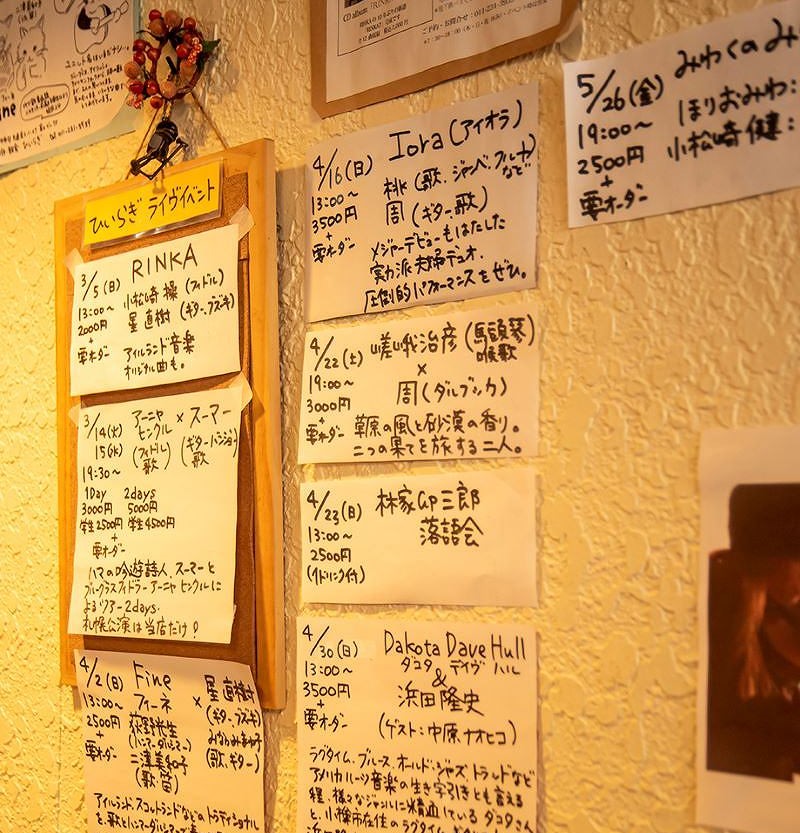 ひいらぎ ライヴイベント
3/5(日) RINKA
13:00~ 小松崎 操(フィドル)
2000円 星 直樹(ギター、ブズーキ)
+
要オーダー アイルランド音楽
オリジナル曲も。
3/14(火) アーニャ × スーマー
15(水) ヒンクル
(フィドル 歌) (ギター、バンジョー 歌)
19:30~
1Day 2days
3000円 5000円
学生2500円 学生4500円
+
要オーダー
ハマの吟遊詩人、スーマーと
ブルーグラスフィドラー アーニャ ヒンクルに
よるツアー2days.
札幌公演は当店だけ!
4/2(日) Fine × 星 直樹
13:00~ フィーネ (ギター、ブズーキ)
2500円 荻野光生
+ (ハンマーダルシマー) (歌、ギター)
要オーダー 二津美和子
(歌・笛)
アイルランド、スコットランドなどのトラディショナル
4/16(日) Iora(アイオラ)
13:00~ 桃(歌、ジャンベ、フルートなど)
3500円 周(ギター、歌)
+
要オーダー メジャーデビューもはたした
実力派夫婦デュオ.
圧倒的パフォーマンスをぜひ。
4/22(土) 嵯峨治彦(馬頭琴 喉歌)
19:00~ ×
3000円 周(ダルブッカ)
+
要オーダー 草原の風と砂漠の香り。
二つの果てを旅する二人。
4/23(日) 林家卯三郎
13:00~ 落語会
2500円
(1ドリンク付)
4/30(日) Dakota Dave Hull
13:00~ ダコタ デイヴ ハル
3500円 &
+ 浜田隆史
要オーダー (ゲスト:中原ナオヒコ)
ラグタイム、ブルース、オールド・ジャズ、トラッドなど
アメリカルーツ音楽の生き字引きとも言える
程、様々なジャンルに精通しているダコタさん
と、小樽市在住のラグタイム
5/26(金) みわくのみ
19:00~ ほりおみわ:
2500円 小松崎 健:
+
要オーダー